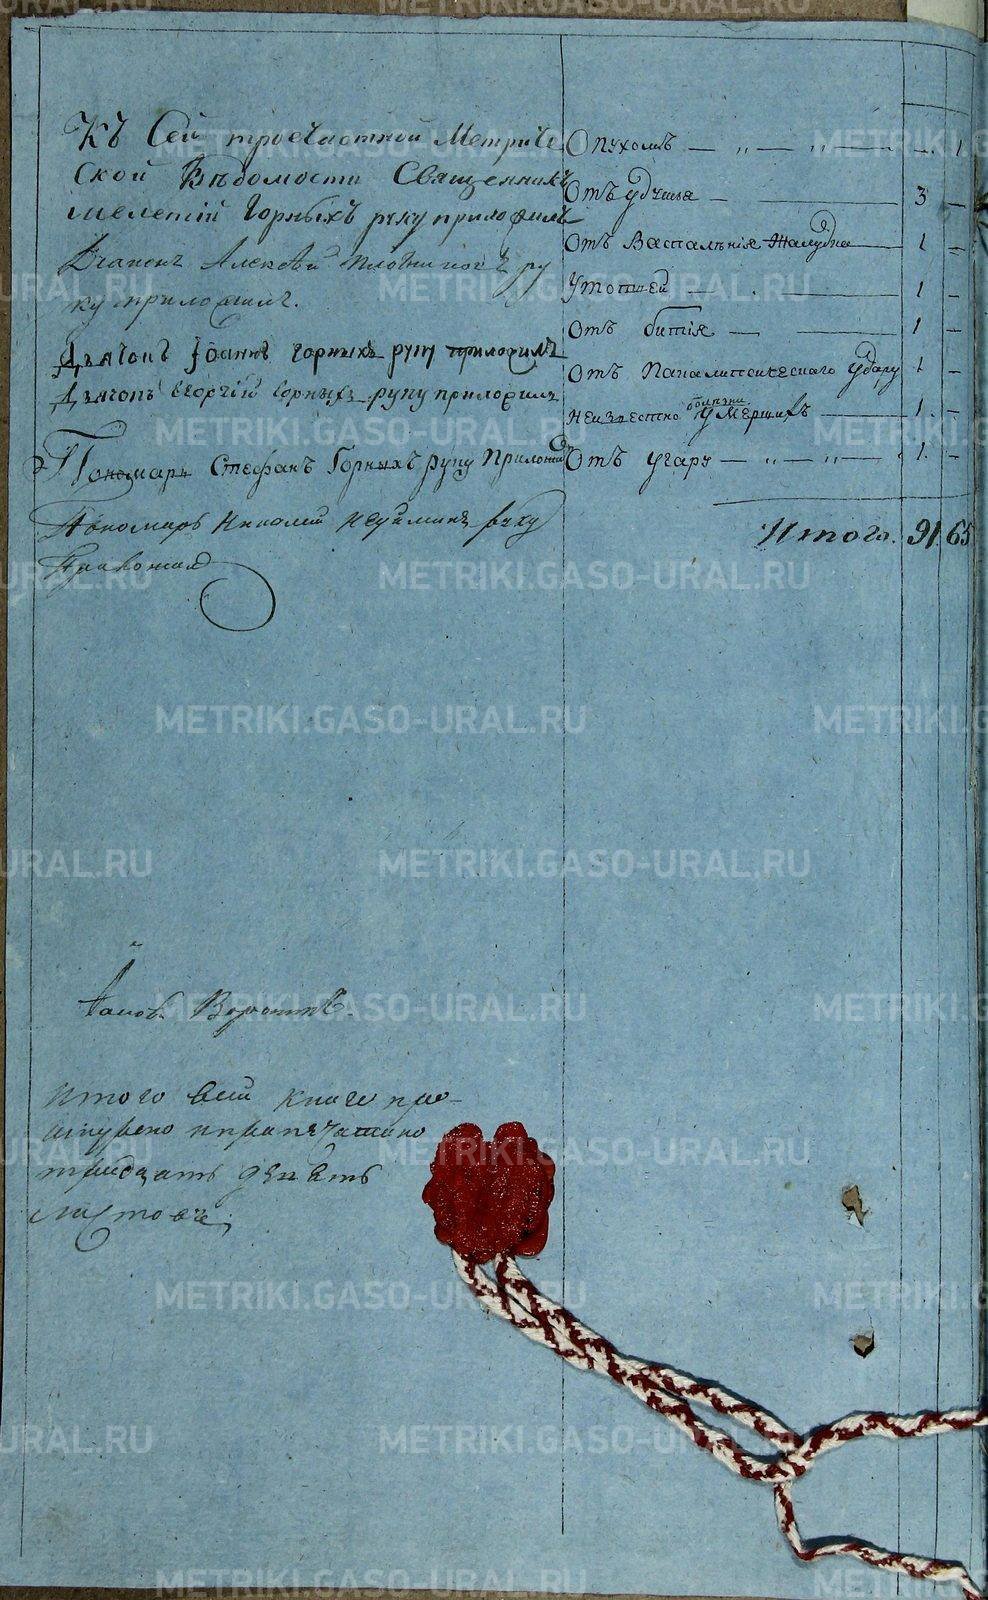 Къ Сей троечастной Метриче
ской Вѣдомости Священникъ
Мелетiй Горныхъ руку приложилъ
Дiаконъ Алексѣй Плотниковъ ру
ку приложилъ.
Дьячокъ Iоаннъ Горныхъ руку приложилъ
Дьячокъ Георгiй Горныхъ руку приложилъ
Пономарь Стефанъ Горныхъ руку Приложилъ
Пономарь Николай руку
Приложилъ
Опухолъ — „ — „ — 1
Отъ удушья — 3 —
Отъ Воспаленiя Желудка — 1 —
Утопшей — 1 —
Отъ битiя — 1 —
Отъ Паралитическаго Удару 1 —
болѣзни
Неизвестно Умершихъ — 1. —
Отъ угару — „ — „ — 1. —
Итого. 91. 65
Iаковъ
Итого въ сей книге про-
шнурено и припечатано
тридцать девѣть
листовъ.
METRIKI.GASO-URAL.RU